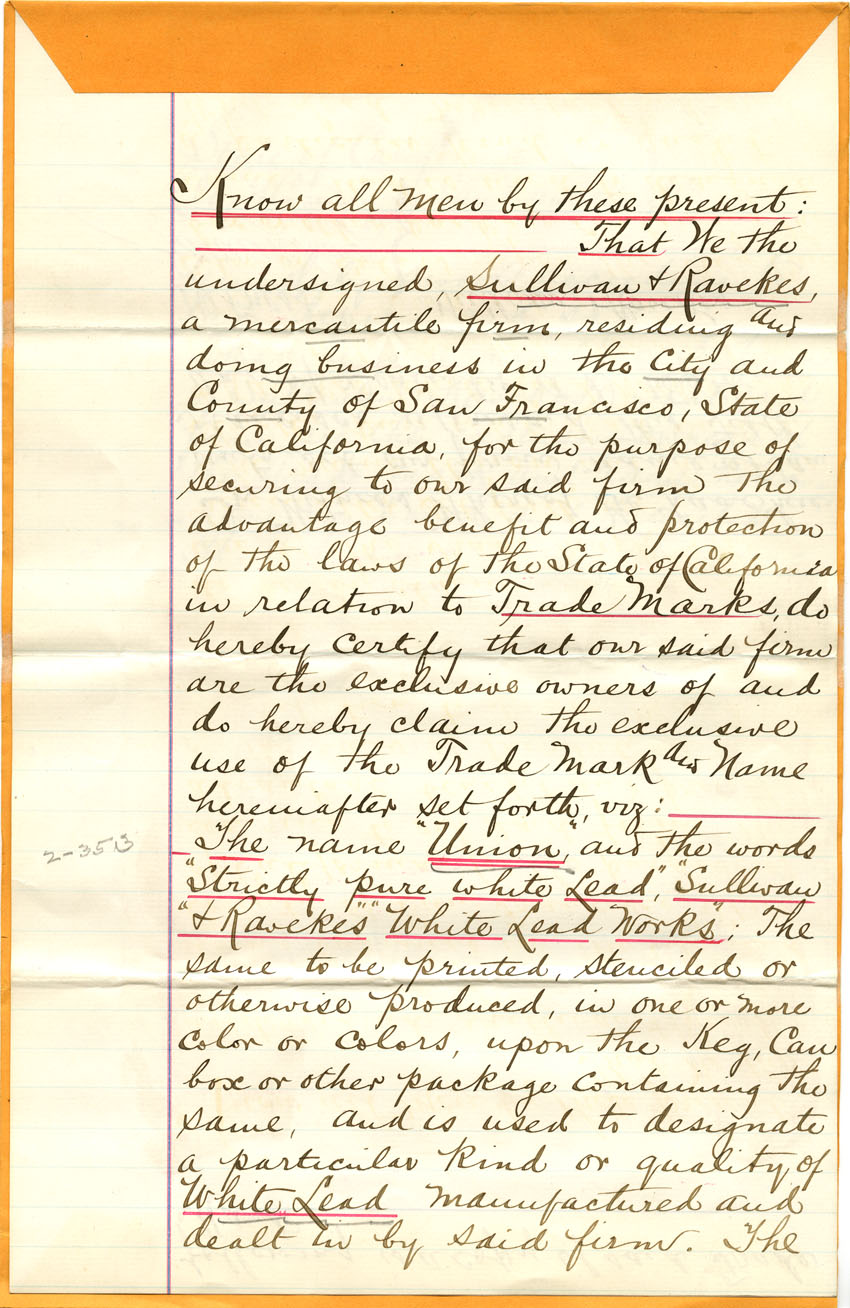 Know all men by these present:
That We the
undersigned, Sullivan & Ravekes,
a mercantile firm, residing and
doing business in the City and
County of San Francisco, State
of California, for the purpose of
securing to our said firm the
advantage benefit and protection
of the laws of the State of California
in relation to Trade Marks, do
hereby certify that our said firm
are the exclusive owners of and
do hereby claim the exclusive
use of the Trade Mark and Name
hereinafter set forth, viz:
The name "Union", and the words
2-3513
"Strictly pure white Lead", "Sullivan
"& Ravekes" "White Lead Works"; The
same to be printed, stenciled or
otherwise produced, in one or more
color or colors, upon the Keg, Can
box or other package containing the
same, and is used to designate
a particular kind or quality of
White Lead manufactured and
dealt in by said firm. The